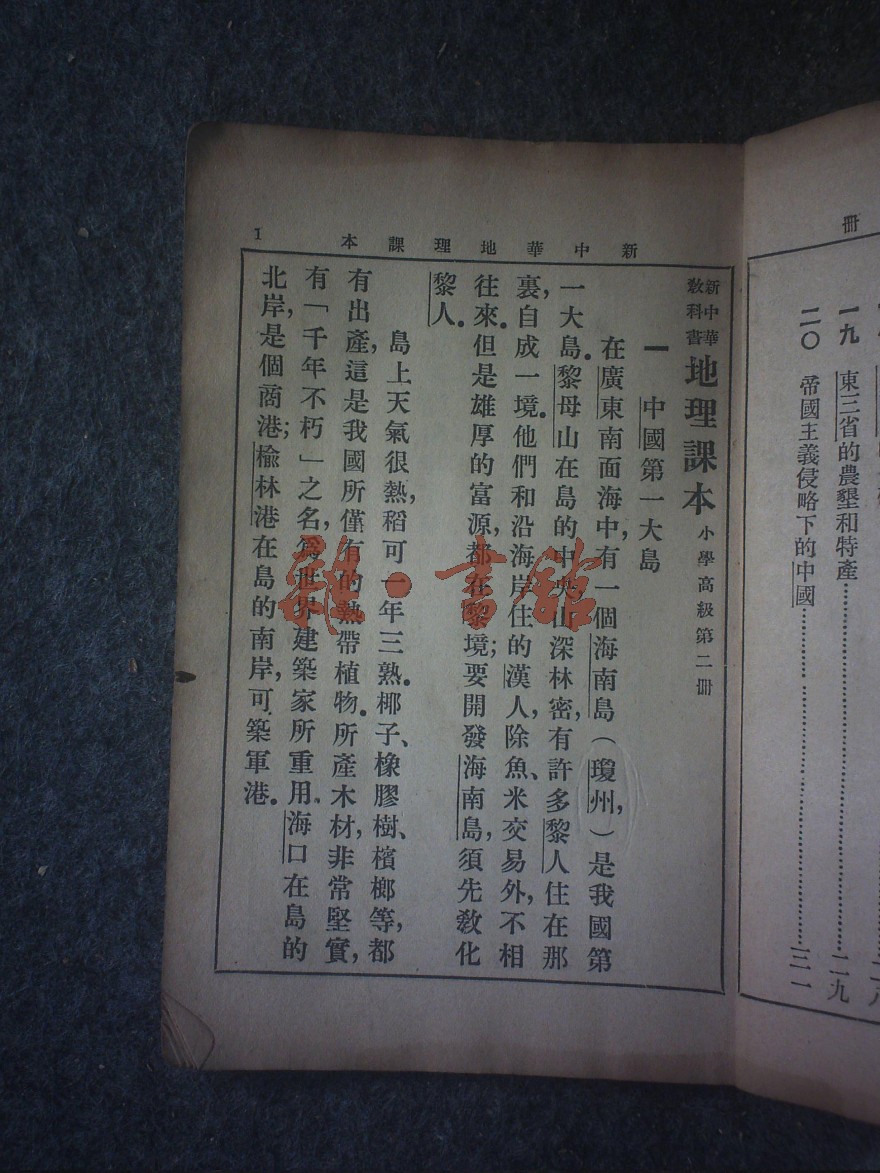 册
一九 東三省的農墾和特產……二九
二〇 帝國主義侵略下的中國……三一
新中華地理課本
1
新中華
教科書
地理課本 小學高級第二册
一 中國第一大島
在廣東南面海中,有一個海南島(瓊州,)是我國第
一大島。黎母山在島的中央,山深林密,有許多黎人住在那
裏,自成一境。他們和沿海岸住的漢人,除魚、米交易外,不相
往來。但是雄厚的富源,都在黎境;要開發海南島,須先敎化
黎人。
島上天氣很熱,稻可一年三熟。椰子、橡膠樹、檳榔等,都
有出產,這是我國所僅有的熱帶植物。所產木材,非常堅實,
有「千年不朽」之名,爲世界建築家所重用。海口在島的
北岸,是個商港;楡林港在島的南岸,可築軍港。
雜·書館